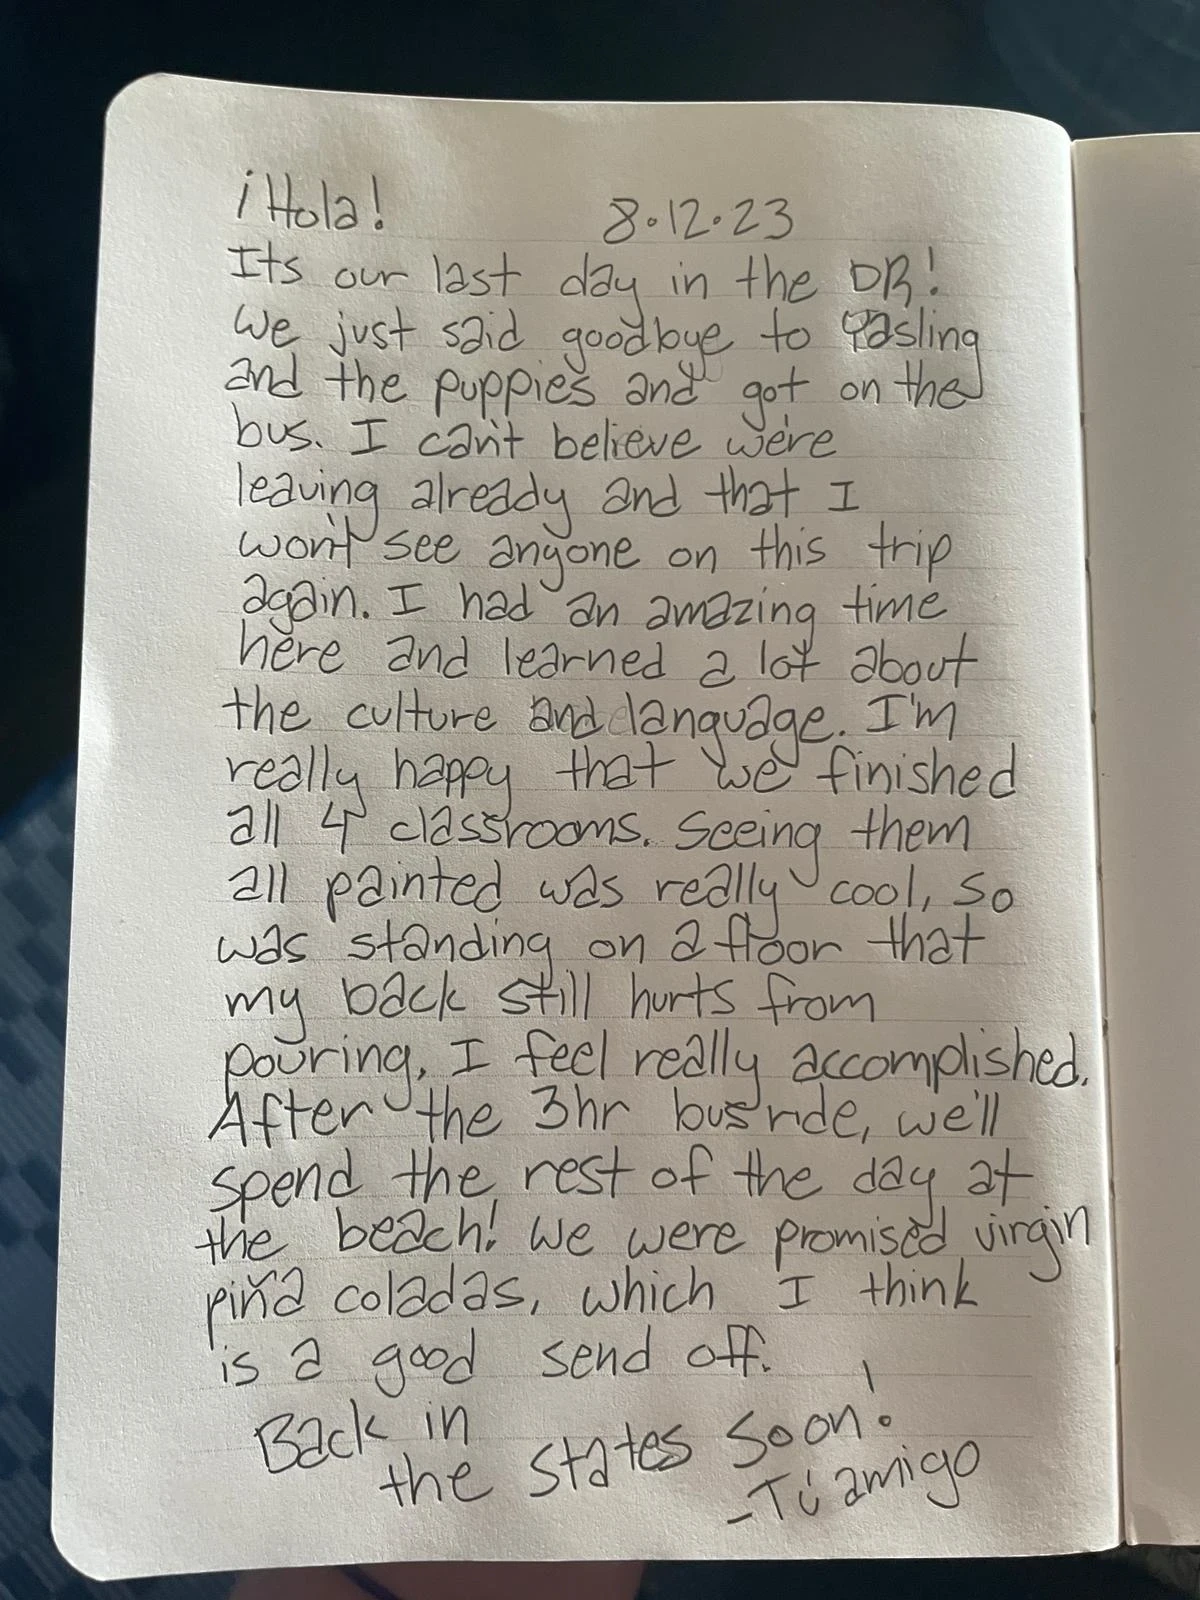 ¡Hola!
8.12.23
Its our last day in the DR!
We just said goodbye to Yasling
and the puppies and got on the
bus. I can't believe we're
leaving already and that I
won't see anyone on this trip
again. I had an amazing time
here and learned a lot about
the culture and language. I'm
really happy that we finished
all 4 classrooms. Seeing them
all painted was really cool, so
was standing on a floor that
my back still hurts from
pouring. I feel really accomplished.
After the 3hr bus ride, we'll
spend the rest of the day at
the beach! We were promised virgin
piña coladas, which I think
is a good send off.
Back in
the states soon!
-Tú amigo